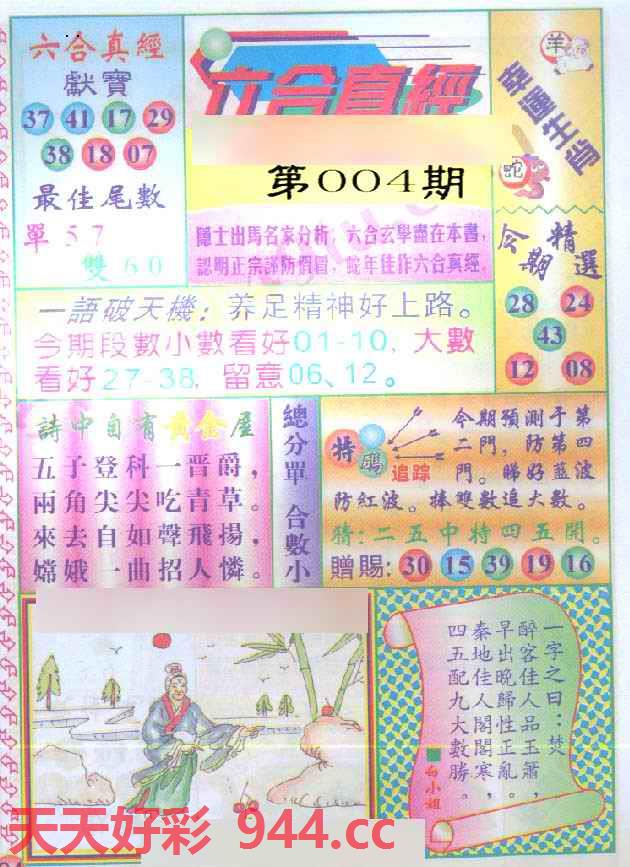 六合真經
獻寶
37 41 17 29
38 18 07
最佳尾數
單 5 7
雙 6 0
六合真經
第004期
隱士出馬名家分析，六合玄學盡在本書，
認明正宗謹防假冒，蛇年佳作六合真經。
羊
幸運生肖
蛇
今期精選
28 24
43
12 08
一語破天機：养足精神好上路。
今期段數小數看好01-10，大數
看好27-38，留意06、12。
詩中自有黄金屋
五子登科一晋爵，
兩角尖尖吃青草。
來去自如聲飛揚，
嫦娥一曲招人憐。
總分單 合數小
特碼
追踪
今期預測于第
二門，防第四
門。睇好藍波
防紅波。捧雙數追大數。
猜：二五中特四五開。
贈賜：30 15 39 19 16
一字之曰：焚
醉客佳人品玉簫，
早出晚歸性正亂。
秦地佳人閣閣寒，
四五配九大數勝。
白小姐
天天好彩 944.cc